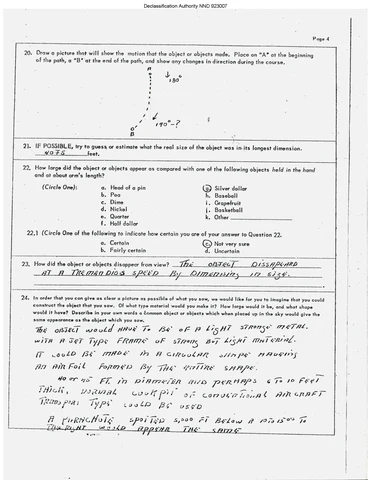 Declassification Authority NND 923007
Page 4
20. Draw a picture that will show the motion that the object or objects made. Place an "A" at the beginning
of the path, a "B" at the end of the path, and show any changes in direction during the course.
A
180°
190° -?
B
21. IF POSSIBLE, try to guess or estimate what the real size of the object was in its longest dimension.
feet.
22. How large did the object or objects appear as compared with one of the following objects held in the hand
and at about arm's length?
(Circle One): a. Head of a pin g. Silver dollar
b. Pea h. Baseball
c. Dime i. Grapefruit
d. Nickel j. Basketball
e. Quarter k. Other
f. Half dollar
22.1 (Circle One of the following to indicate how certain you are of your answer to Question 22.
a. Certain c. Not very sure
b. Fairly certain d. Uncertain
23. How did the object or objects disappear from view? THE OBJECT DISSAPEARD
AT A TREMENDIOS SPEED BY DIMENING IN SIZE.
24. In order that you can give as clear a picture as possible of what you saw, we would like for you to imagine that you could
construct the object that you saw. Of what type material would you make it? How large would it be, and what shape
would it have? Describe in your own words a common object or objects which when placed up in the sky would give the
same appearance as the object which you saw.
THE OBJECT WOULD HAVE TO BE OF A LIGHT STRANGE METAL.
WITH A JET TYPE FRAME OF STRONG BUT LIGHT MATERIAL.
IT COULD BE MADE IN A CIRCULAR SHAPE HAVEING
AN AIR FOIL FORMED BY THE ENTIRE SHAPE.
40 OR 45 FT. IN DIAMETER AND PERHAPS 6 TO 10 FEET
THICK, NORMAL COCKPIT OF CONVENTIONAL AIRCRAFT
TYPE COULD BE USED
A PARACHUTE SPOTTED 5,000 FT BELOW A
WOULD APPEAR THE SAME